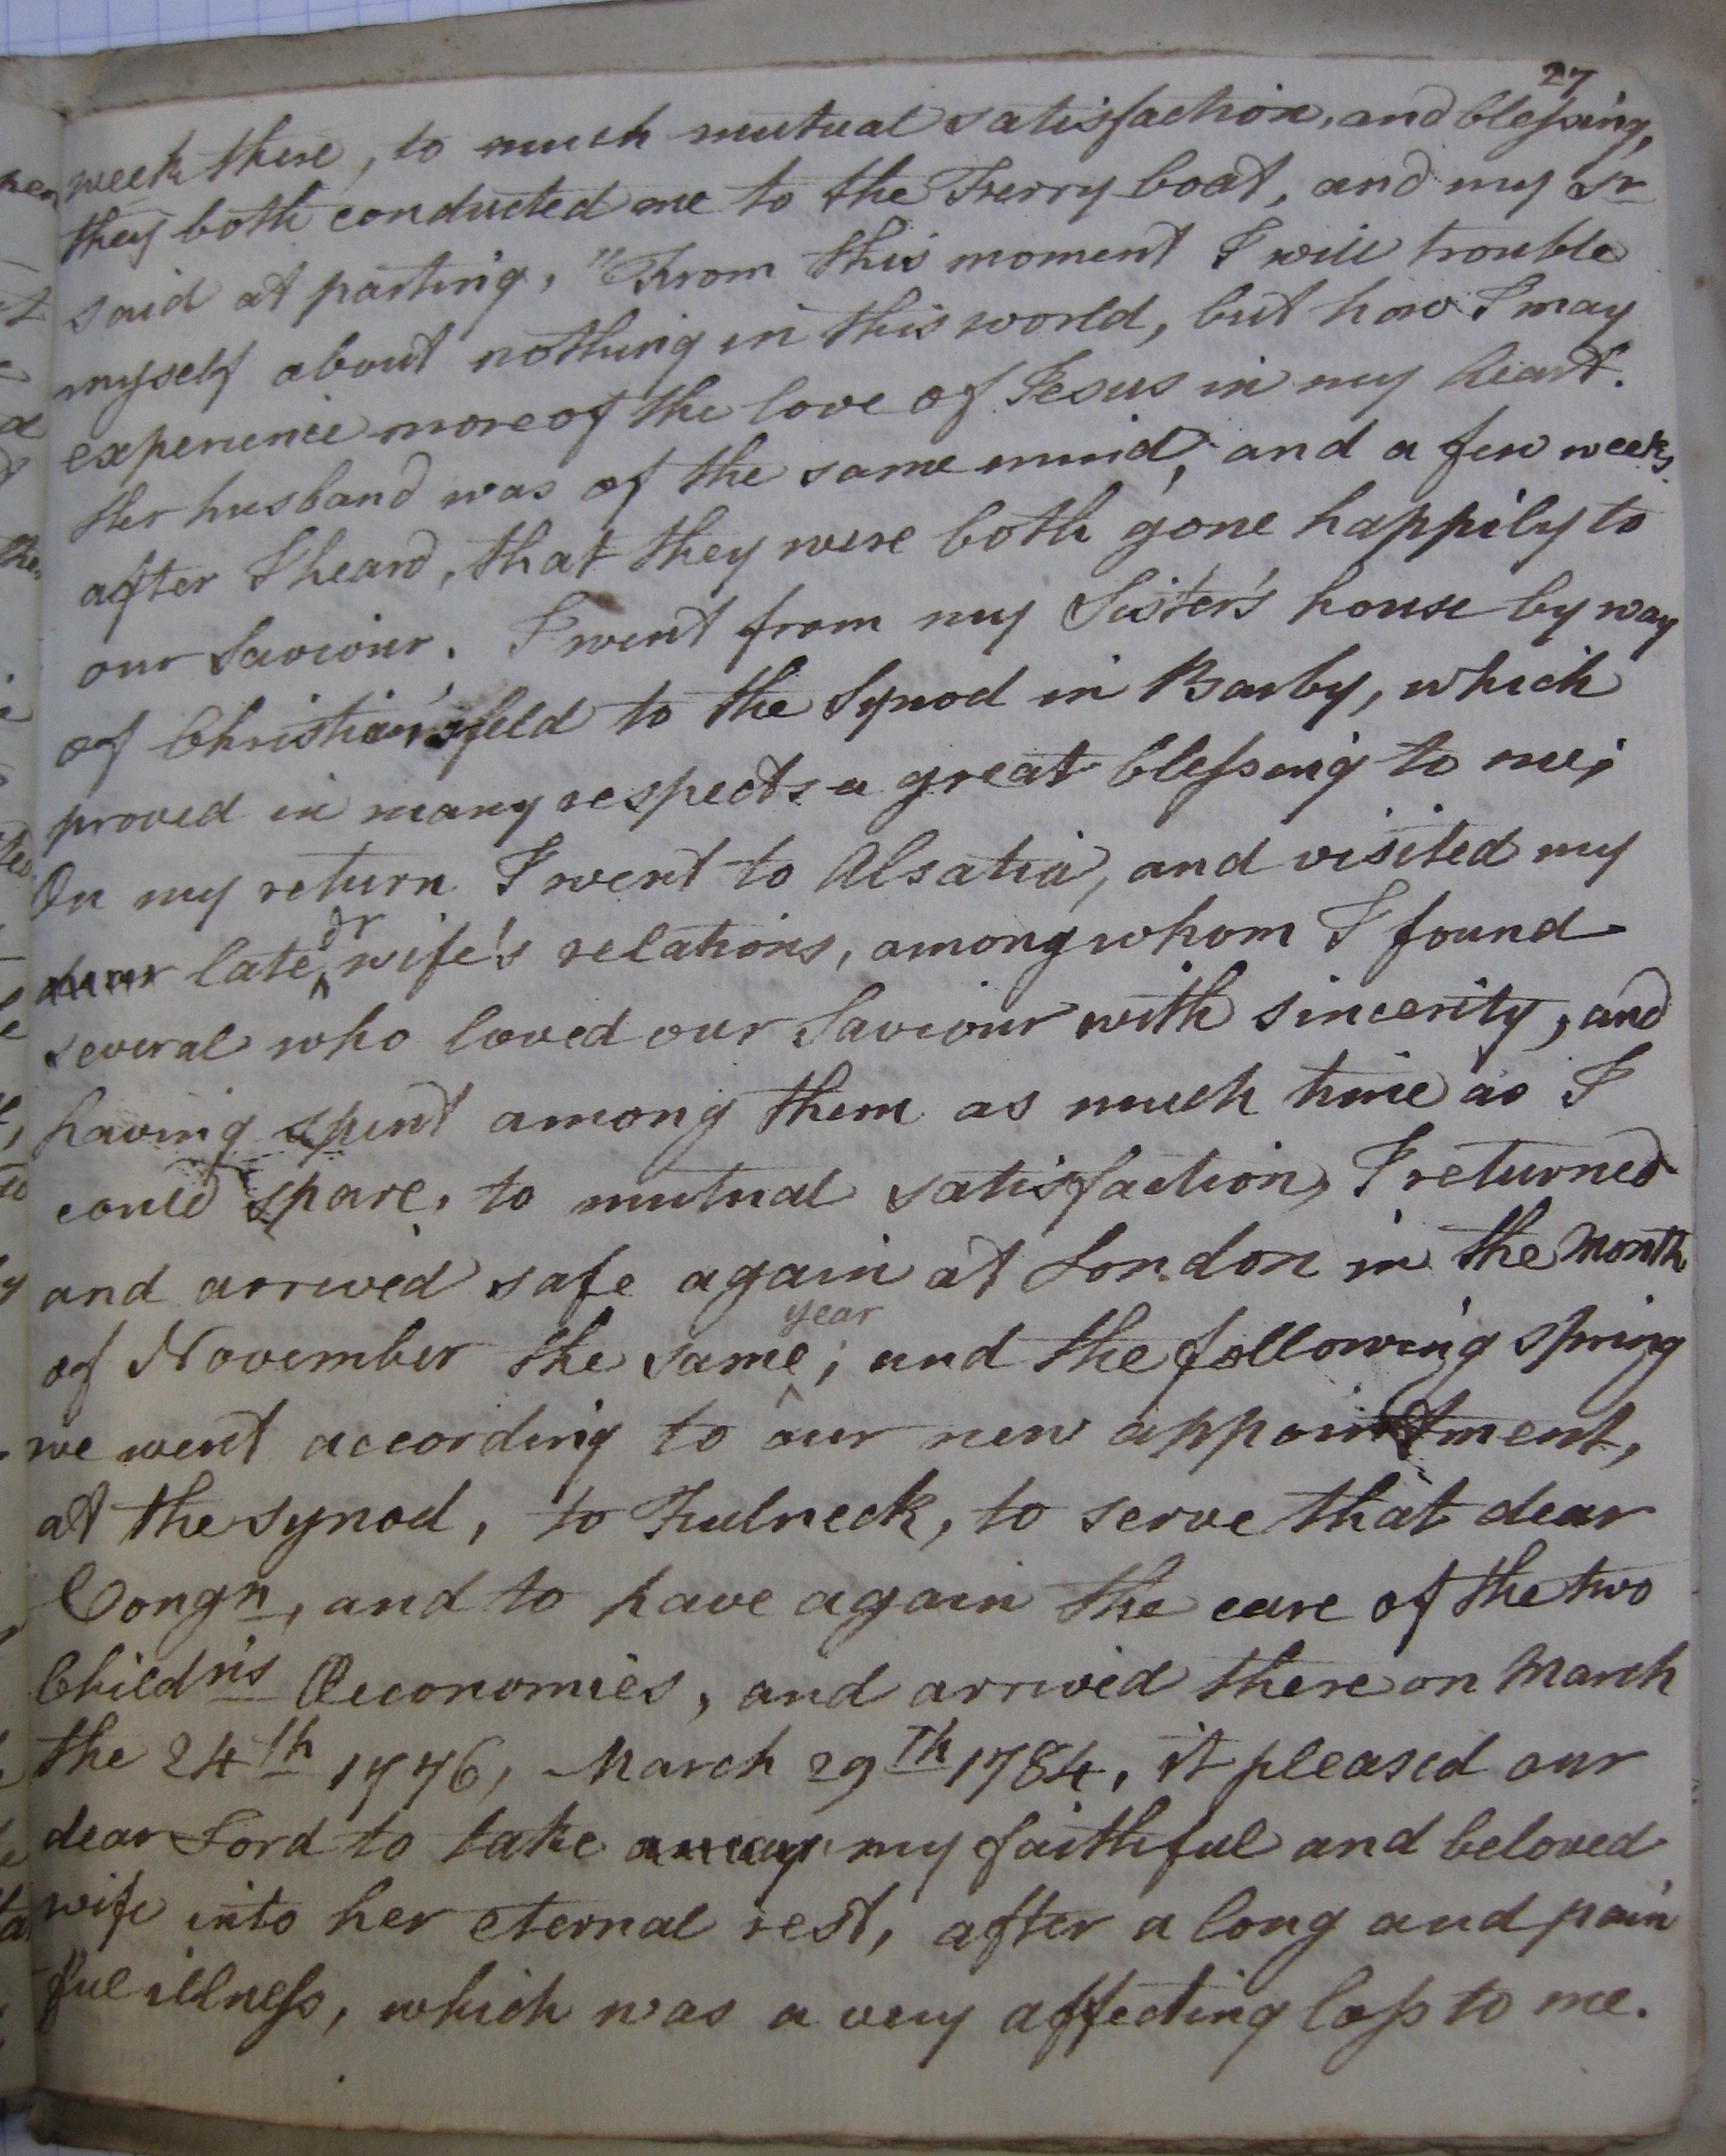 27
week there, to much mutual satisfaction, and blessing,
they both conducted me to the Ferry boat, and my Sr
said at parting, "From this moment I will trouble
myself about nothing in this world, but how I may
experience more of the love of Jesus in my heart.
Her husband was of the same mind, and a few weeks
after I heard, that they were both gone happily to
our Saviour. I went from my Sister's house by way
of Christiansfeld to the Synod in Barby, which
proved in many respects a great blessing to me;
On my return I went to Alsatia, and visited my
late dr wife's relations, among whom I found
several who loved our Saviour with sincerity, and
having spent among them as much time as I
could spare, to mutual satisfaction, I returned
and arrived safe again at London in the Month
of November the same year; and the following spring
we went according to our new appointment,
at the synod, to Fulneck, to serve that dear
Congn, and to have again the care of the two
Childrn's Œconomies, and arrived there on March
the 24th 1776, March 29th 1784, it pleased our
dear Lord to take away my faithful and beloved
wife into her eternal rest, after a long and pain
ful illness, which was a very affecting loss to me.